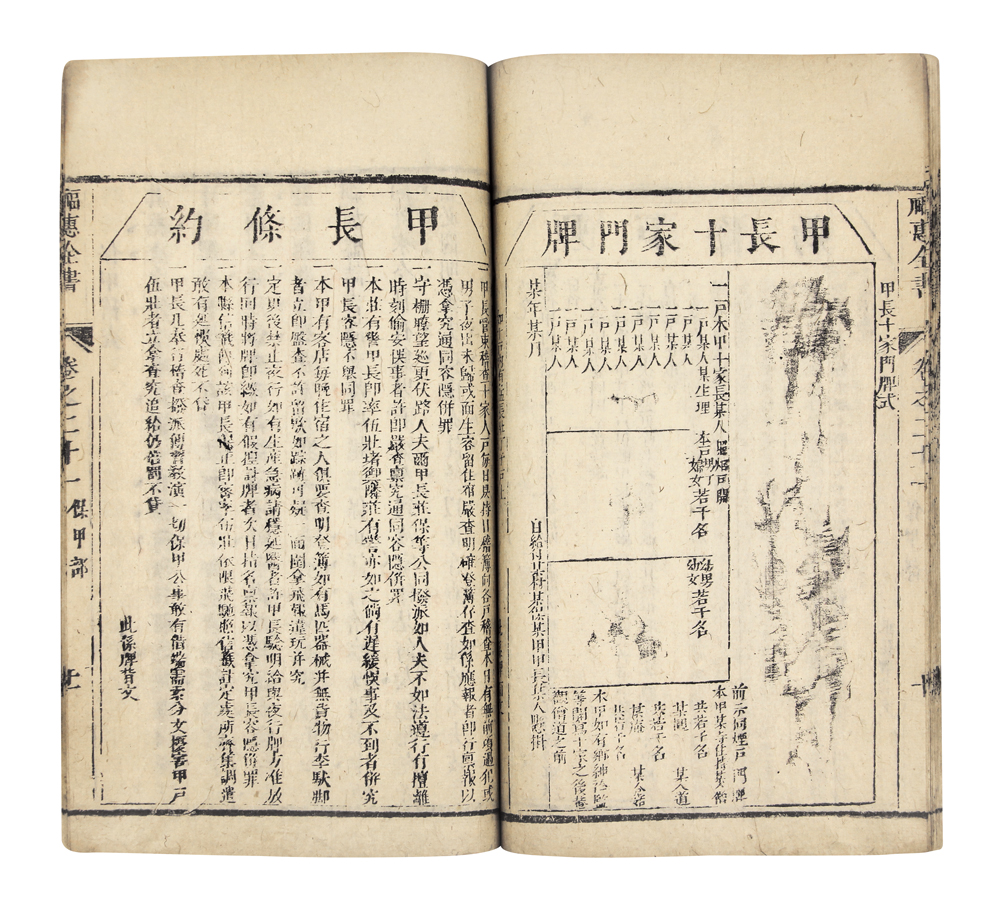 福惠全書
甲長十家門牌式
甲長十家門牌
一戶本甲十家長某人
一戶某人某生理
本戶
若干名
幼男若干名
幼女
一戶某人
一戶某人
一戶某人
一戶某人
一戶某人
一戶某人
一戶某人
一戶某人
某年某月
日給付某村某莊某甲甲長某人懸掛
前示同煙戶門牌
本甲某寺住持某僧
共若干名
某道
共若干名
某人道
某菴
共若干名
某人若
本甲如有鄉紳
等開寫十家之後
僧道之前
福惠全書
卷之二十一
保甲部
甲長條約
男子夜出未歸或面生容留住宿嚴查明確登簿存查如係應報者即行稟報以
憑拿究通同容隱併罪
一守柵瞭望巡更伏路人夫爾甲長莊保等公同撥派如人夫不如法遵行擅離
時刻偷安悞事者許即嚴查稟究通同容隱併罪
一本莊有警甲長即率伍壯堵禦隣莊有警亦如之倘有遲緩悞事及不到者併究
甲長容隱不舉同罪
一本甲有客店每晚住宿之人俱要查明登簿如有馬匹器械并無貨物行李馱脚
者立即盤查不許留歇如踪跡可疑一面圍拿飛報違玩并究
一定更後禁止夜行如有生產急病請穩延醫者許甲長驗明給與夜行牌方准放
行回時將牌即繳如有假捏討牌者次日指名稟報以憑拿究甲長容隱併罪
敢有延悞處死不貸
一甲長凡奉行稽查撥派傳習教演一切保甲公事敢有借端需索分文擾害甲戶
伍壯者立拿查究追給仍苔罰不貸
此係牌背文